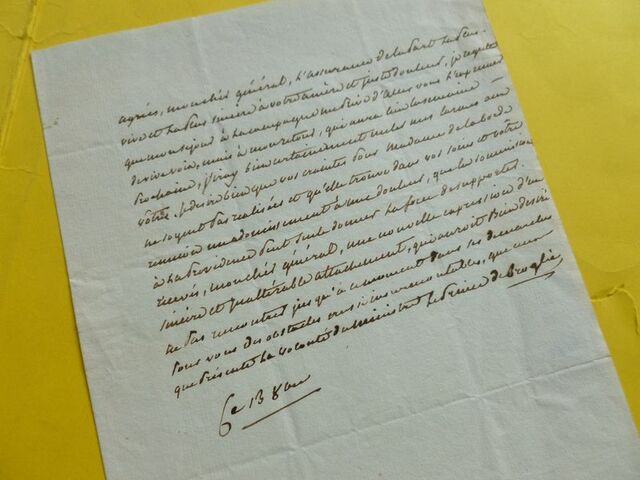 agrées, mon cher général, l'assurance de la part la plus
vive et la plus sincère à votre amère et juste douleur, je regrette
que mon séjour à la campagne me prive d'aller vous l'exprimer
de vive voix, mais à mon retour, qui aura lieu la semaine
prochaine, j'iray bien certainement mêler mes larmes aux
vôtre. je desire bien que vos craintes pour madame de la borde
ne soyent pas réalisées et qu'elle trouve dans vos soins et votre
un adoucissement à une douleur, que la soumission
à la providence peut seule donner la force de supporter.
recevés, mon cher général, une nouvelle expression d'un
sincère et inaltérable attachement, qui auroit bien desiré
ne pas rencontrer jusqu'à ce moment dans ses demarches
pour vous des obstacles aussi insurmontables, que ceux
que présente la volonté du ministre. le prince de Broglie
Ce 13 8bre